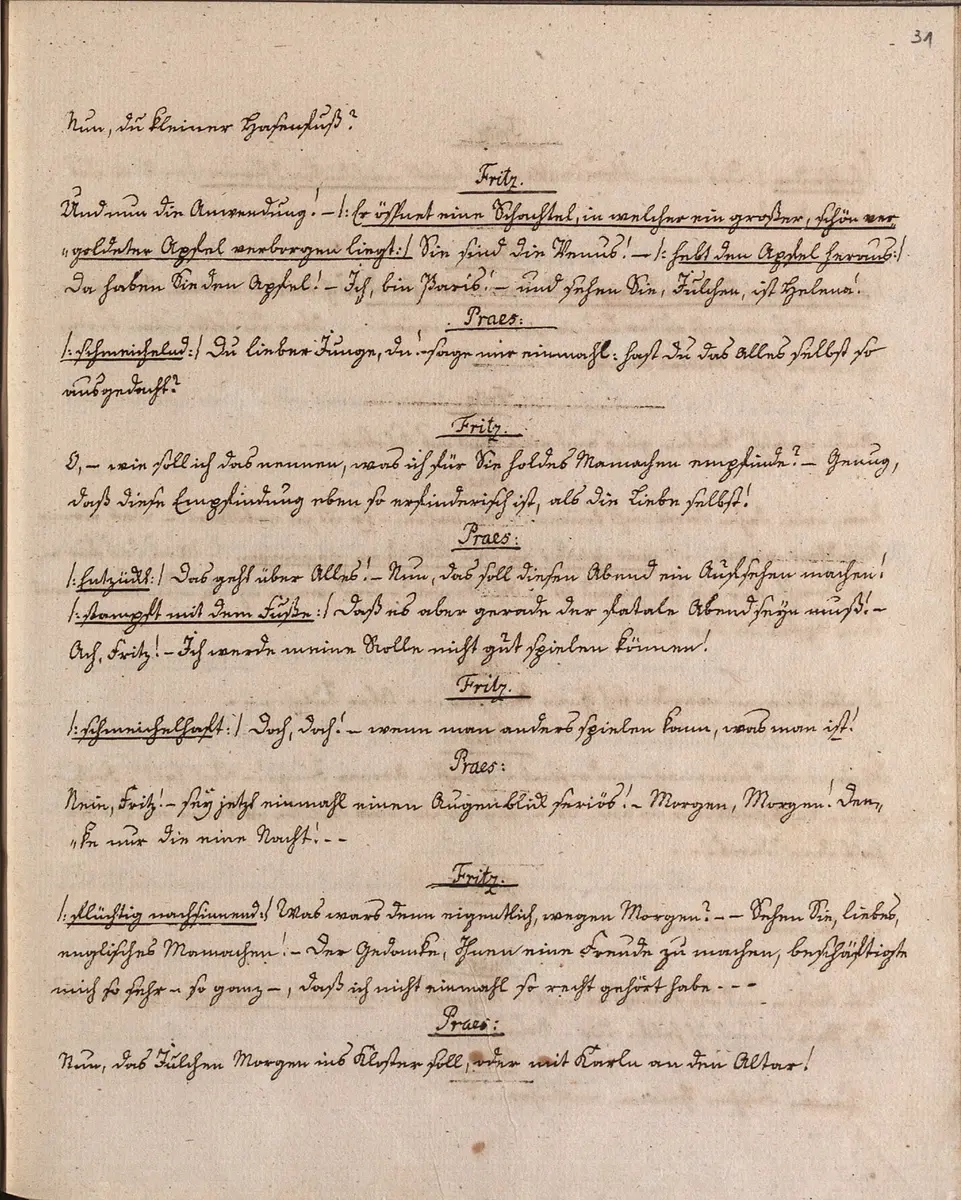 31
Nun, du kleiner Hasenfuß?
Fritz.
Und nun die Anwendung! – /: Er öffnet eine Schachtel, in welcher ein großer, schön ver-
"goldeter Apfel verborgen liegt :/ Sie sind die Venus! – /: hebt den Apfel heraus :/
Da haben Sie den Apfel! – Ich, bin Paris! – und sehen Sie, Julchen, ist Helena!
Praes:
/: schmeichelnd :/ Du lieber Junge, du! – sage mir einmahl: hast du das Alles selbst so
ausgedacht?
Fritz.
O, – wie soll ich das nennen, was ich für Sie holdes Mamachen empfinde? – Genug,
daß diese Empfindung eben so erfinderisch ist, als die Liebe selbst!
Praes:
/: Entzückt :/ Das geht über Alles! – Nun, das soll diesen Abend ein Aufsehen machen!
/: stampft mit dem Fuße :/ Daß es aber gerade der fatale Abend seyn muß! –
Ach, Fritz! – Ich werde meine Rolle nicht gut spielen können!
Fritz.
/: schmeichelhaft :/ Doch, doch! – wenn man anders spielen kann, was man ist!
Praes:
Nein, Fritz! – sey jetzt einmahl einen Augenblick seriös! – Morgen, Morgen! Den-
"ke nur die eine Nacht! – –
Fritz.
/: flüchtig nachsinnend :/ Was wars denn eigentlich, wegen Morgen? – – Sehen Sie, liebes,
englisches Mamachen! – Der Gedanke, Ihnen eine Freude zu machen, beschäftigte
mich so sehr – so ganz –, daß ich nicht einmahl so recht gehört habe – – –
Praes:
Nun, das Julchen Morgen ins Kloster soll, oder mit Karln an den Altar!